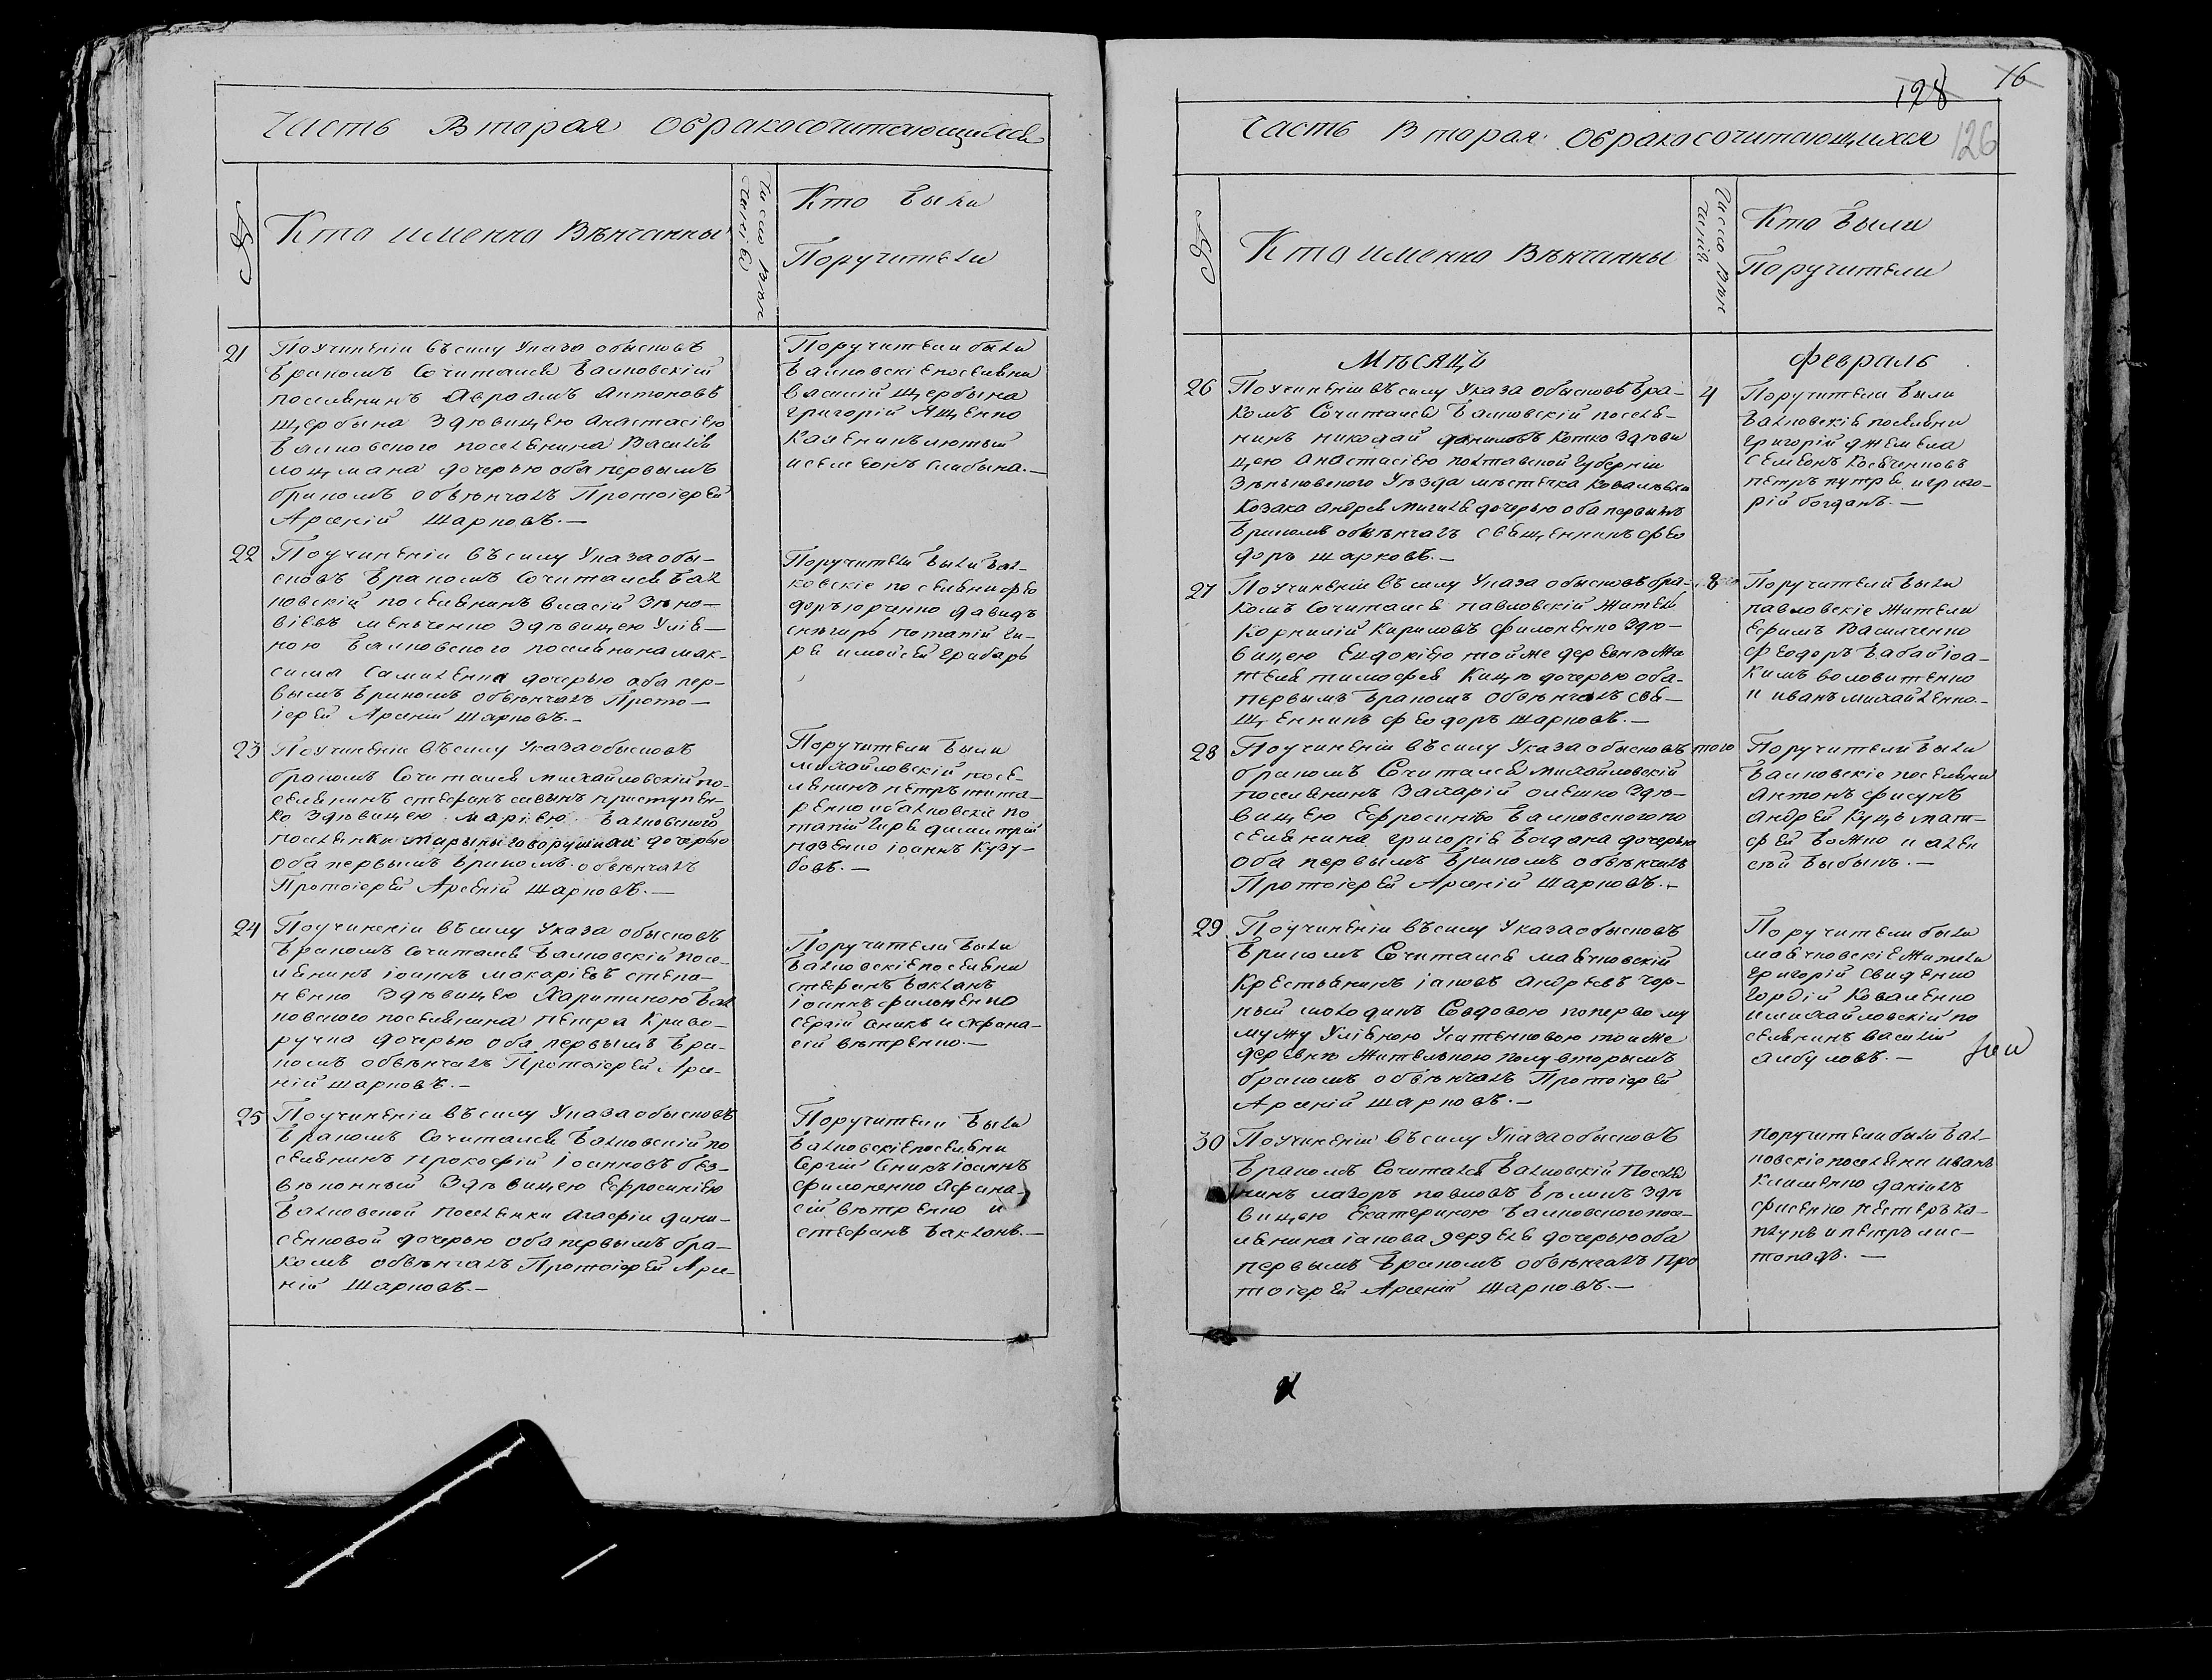 Часть Вторая обракосочитающихся
№
Кто именно Вѣнчанны
Число Вѣнчанія
Кто были
Поручители
21
Поучиненіи Всилу Указа обысковъ
бракомъ Сочитался Балковскій
поселянинъ Авраамъ Антоновъ
щербына Здѣвицею Анастасіею
Балковского поселенина Василія
лоцмана дочерью оба первымъ
бракомъ обвѣнчалъ Протоіерей
Арсеній Шарковъ.—
Поручители были
Балковскіе поселяни
василій щербына
григорій Ященко
Каленикъ лютый
22
Поучиненіи Всилу Указа обы-
сковъ бракомъ Сочитался Бал
ковскій поселянинъ власій Зѣно-
віевъ Здѣвицею Уліа-
ною Балковского поселянина мак-
сима дочерью оба пер-
вымъ бракомъ обвѣнчалъ Прото-
іерей Арсеній Шарковъ.—
Поручители были Бал-
ковскіе поселяни фео
доръ юрченко давидъ
снѣгирь потапій Ги-
ря имойсей грабарь
23
Поучиненіи Всилу Указа обысковъ
бракомъ Сочитался михайловскій по-
селянинъ стефанъ приступен-
ко Здѣвицею Маріею Балковского
дочерью
оба первымъ бракомъ обвѣнчалъ
Протоіерей Арсеній Шарковъ.—
Поручители были
михайловскій посе-
лянинъ петръ тита-
ренко ибалковскіе по
тапій Гиря димитрій
іоаннъ Кузу-
бовъ.—
24
Поучиненіи Всилу Указа обысковъ
бракомъ Сочитался Балковскій посе-
лянинъ іоаннъ макаріевъ степа-
ненко Здѣвицею Харитиною Бал
ковского поселянина петра Криво-
ручка дочерью оба первымъ бра-
комъ обвѣнчалъ Протоіерей Арсе-
ній шарковъ.—
Поручители были
Балковскіе поселяни
стефанъ Бакланъ
іоаннъ фильненко
сергій Сникъ и Афана-
сій вѣтренко.—
25
Поучиненіи Всилу Указа обысковъ
бракомъ Сочитался Балковскій по
селянинъ прокофій іоанновъ без-
вѣконный Здѣвицею Ефросиніею
Балковской поселянки агафіи дени-
сенковой дочерью оба первымъ бра-
комъ обвѣнчалъ Протоіерей Арсе-
ній Шарковъ.—
Поручители были
Балковскіе поселяни
Сергій Сникъ іоаннъ
филоненко Афана-
сій вѣтренко и
стефанъ Бакланъ.—
128
16
126
Часть Вторая Обракосочитающихся
№
Кто именно Вѣнчанны
Число Вѣнчанія
Кто были
Поручители
Мѣсяць
февраль
26
Поучиненіи Всилу Указа обысковъ бра-
комъ Сочитался Балковскій поселя-
нинъ николай даниловъ Котко Здѣви
цею анастасіею полтавской губерніи
Зѣньковского Уѣзда мѣстечка Ковалѣвки
Козака андрея дочерью оба первымъ
бракомъ обвѣнчалъ священникъ фео
доръ шарковъ.—
4
Поручители были
Балковскіе поселяни
григорій джемела
семеонъ Косяченковъ
петръ и григо-
рій богданъ.—
27
Поучиненіи Всилу Указа обысковъ бра-
комъ Сочитался павловскій житель
Корнилій Кириловъ филоненко Здѣ-
вицею Евдокіею тойже деревнѣ жи
теля тимофея дочерью оба-
первымъ бракомъ обвѣнчалъ Свя-
щенникъ феодоръ шарковъ.—
8
Поручители были
павловскіе жители
Ефимъ Василченко
феодоръ Бабай іоа-
кимъ воловитенко
и иванъ михайленко.—
28
Поучиненіи Всилу Указа обысковъ
бракомъ Сочитался михайловскій
поселянинъ Захарій олешко Здѣ-
вицею Ефросиніею Балковского по
селянина григорія Богдана дочерью
оба первымъ бракомъ обвѣнчалъ
Протоіерей Арсеній Шарковъ.—
того
Поручители были
Балковскіе поселяни
антонъ фисунъ
андрей Куць мат-
фей Божко и алек
сѣй Быбыкъ.—
29
Поучиненіи Всилу Указа обысковъ
бракомъ Сочитался маячковскій
Крестьянинъ іаковъ андреевъ чор-
ный молодикъ Совдовою поперво му
мужу Уліаною тойже
деревнѣ жителькою полувторымъ
бракомъ обвѣнчалъ Протоіерей
Арсеній Шарковъ.—
Поручители были
маячковскіе жители
григорій Свиденко
Гордій Коваленко
имихайловскій по
селянинъ василій
албуловъ.—
30
Поучиненіи Всилу Указа обысковъ
бракомъ Сочитался Балковскій Поселя
нинъ лазоръ павловъ Здѣ
вицею Екатериною Балковского посе-
лянина іакова дочерью оба
первымъ бракомъ обвѣнчалъ Про
тоіерей Арсеній Шарковъ.—
поручители были Бал-
ковскіе поселяни иванъ
Клименко даніилъ
фисенко нестеръ Ка-
плунъ и петръ лис-
топадъ.—